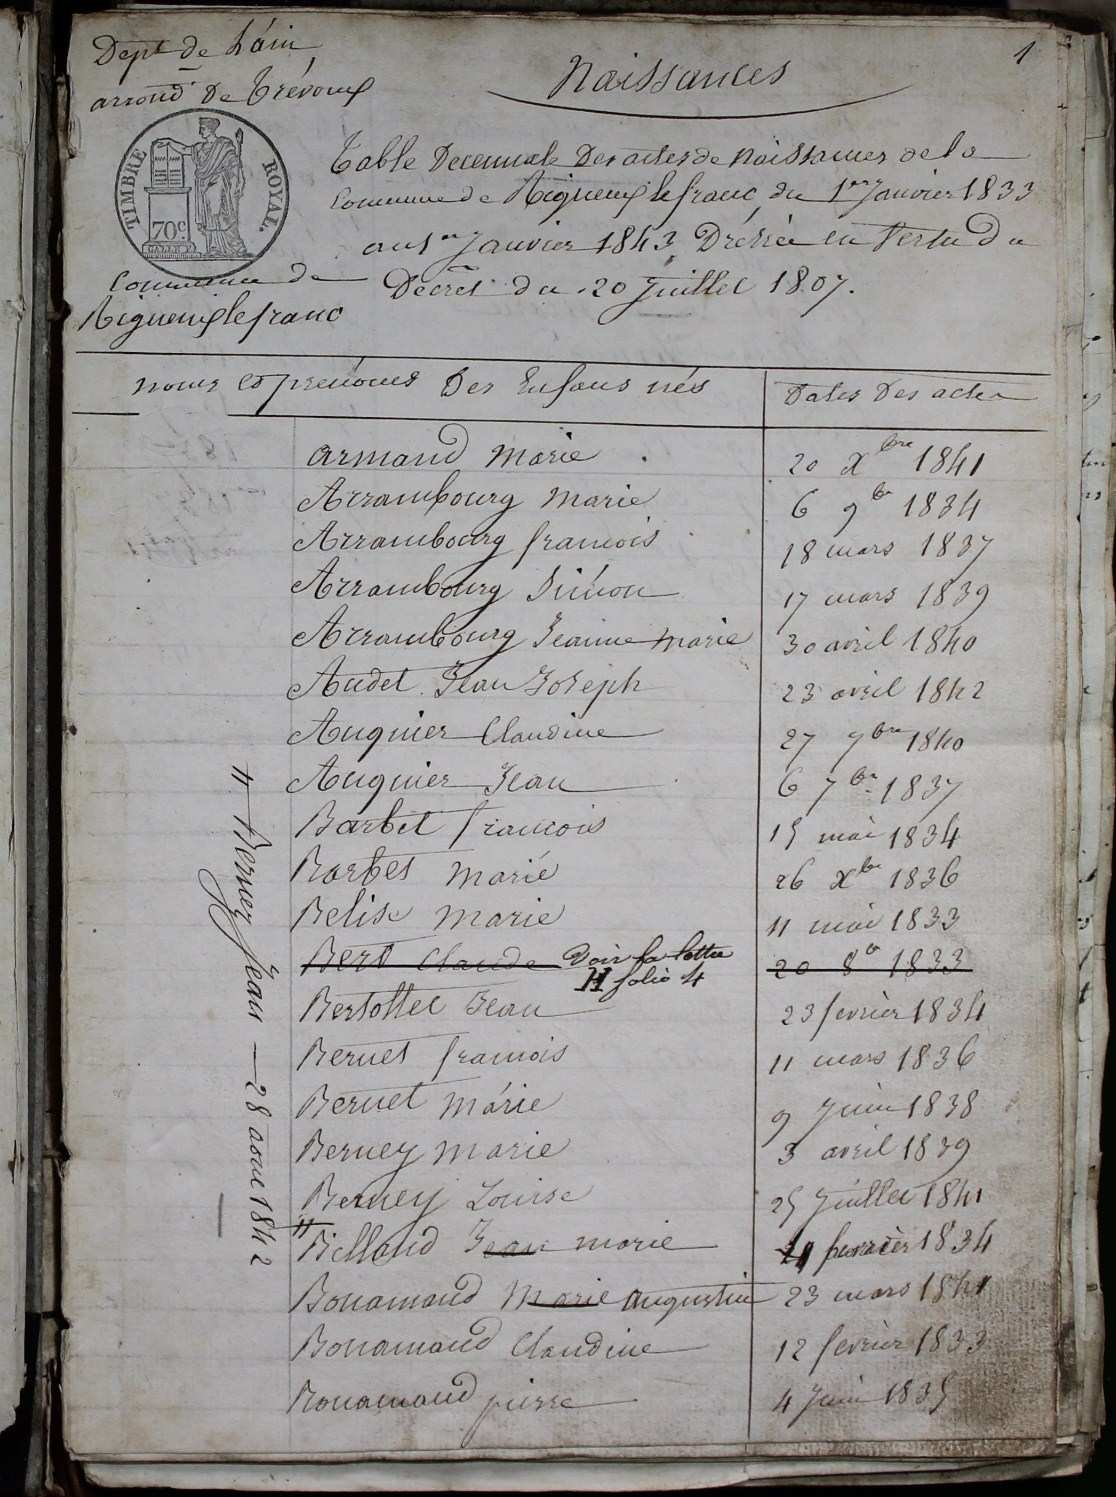 1
Dept de L'ain
arrond de Trévoux
Naissances
TIMBRE ROYAL.
70c.
Table Decennale Des actes de Naissances de la
Commune de Rignieux le franc du 1er Janvier 1833
au 1er Janvier 1843, Dréssée en Vertu du
Décret du 20 Juillet 1807.
Commune de
Rignieux le franc
noms et prénoms Des Enfans nés
Dates Des actes
armand Marie 20 Xbre 1841
Arrambourg Marie 6 9b 1834
Arrambourg francois 18 mars 1837
Arrambourg Siméon 17 mars 1839
Arrambourg Jeanne Marie 30 avril 1840
Audet Jean Joseph 23 avril 1842
Auquier Claudine 27 7bre 1840
Auquier Jean 6 7br 1837
Barbet francois 15 mai 1834
Barbet Marie 26 Xbr 1836
Belise Marie 11 mai 1833
Bert Claude Voir la lettre 20 8b 1833
H folio 4
Bertollet Jean 23 fevrier 1834
Bernet francois 11 mars 1836
Bernet Marie 9 Juin 1838
Berney Marie 3 avril 1839
Berney Louise 25 Juillet 1841
# Berney Jean — 28 aout 1842
Billoud Jean marie fevrier 1834
Bonamand Marie augustin 23 mars 1841
Bonamand Claudine 12 fevrier 1833
Bonamand pierre 4 Juin 1835